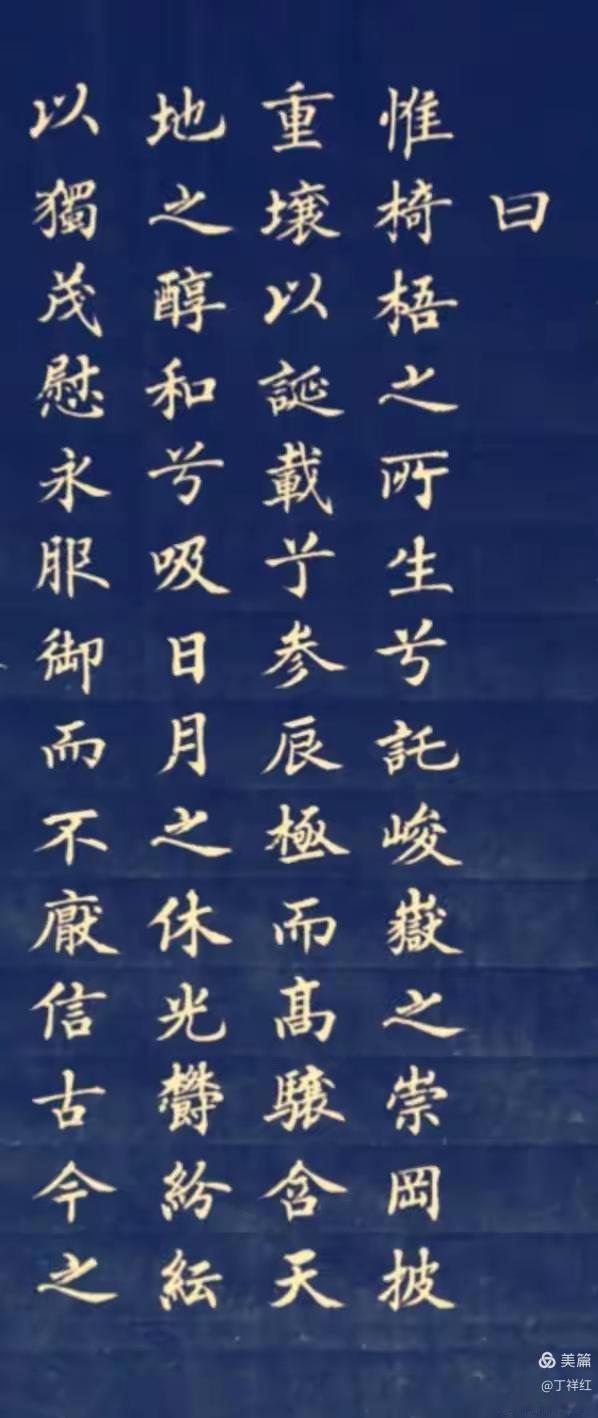 曰
惟椅梧之所生兮託峻嶽之崇岡披
重壤以誕載兮参辰極而高驤含天
地之醇和兮吸日月之休光欝紛紜
以獨茂慰永服御而不厭信古今之
美篇
@丁祥红